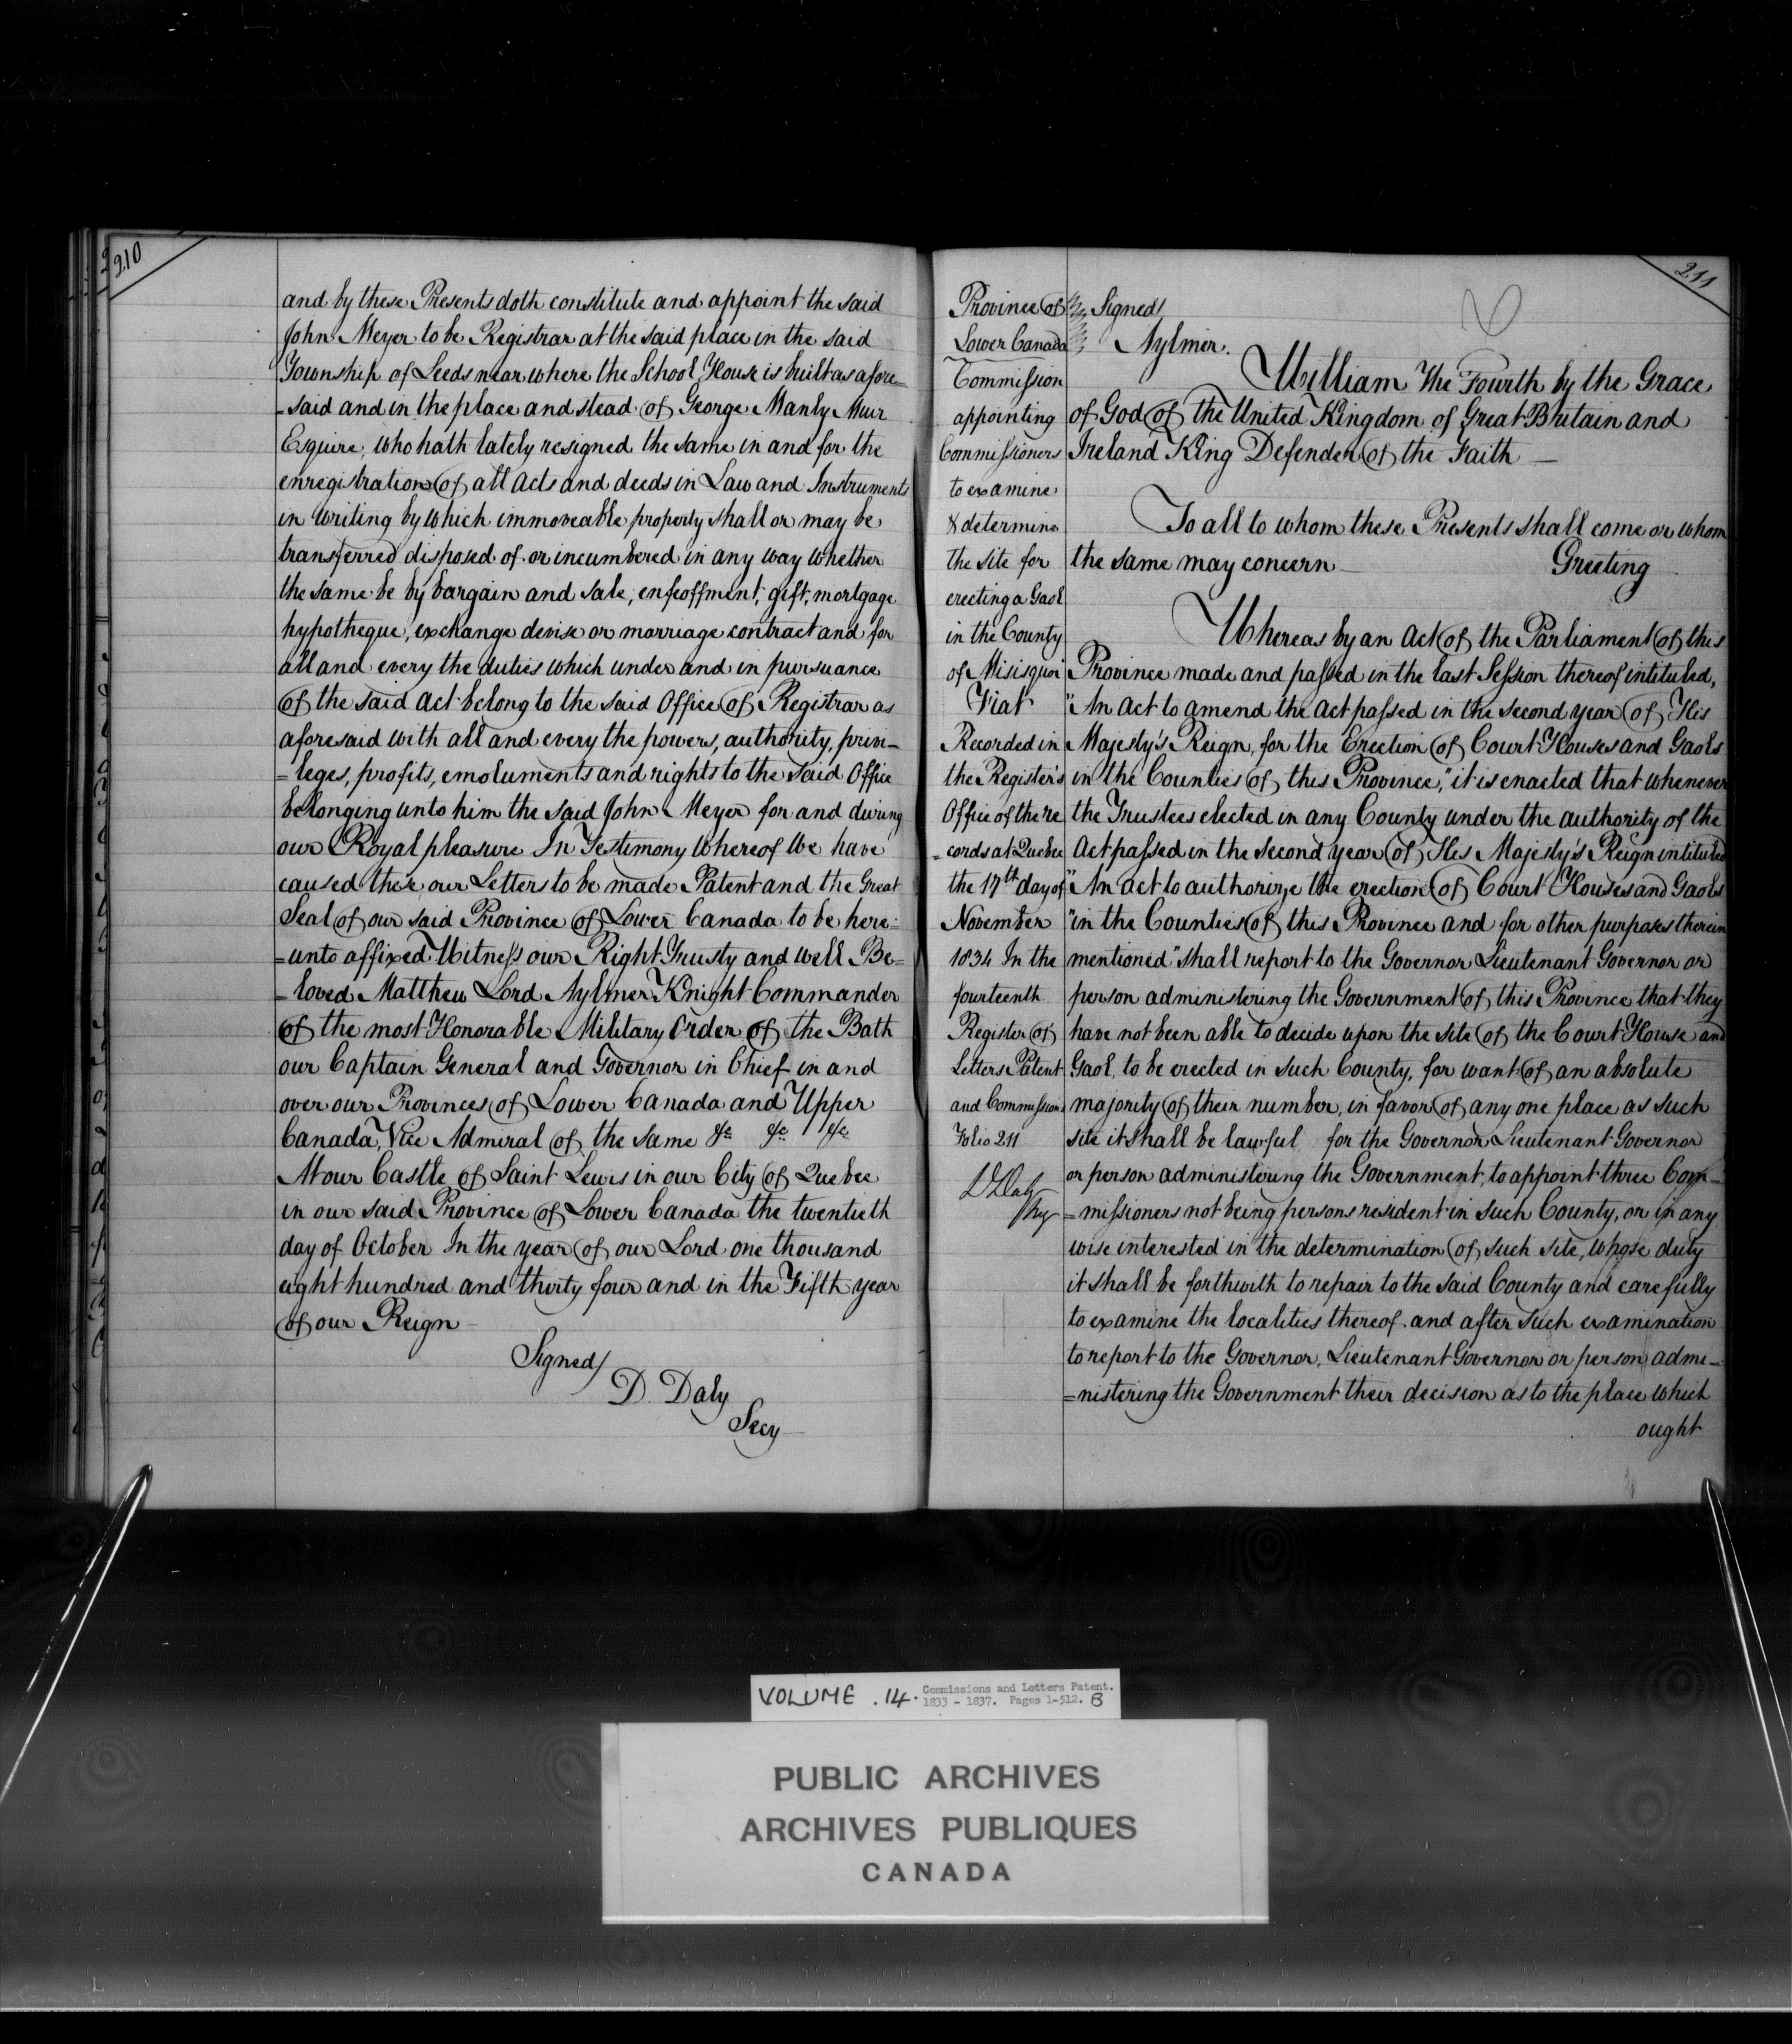 210
and by these Presents doth constitute and appoint the said
John Meyer to be Registrar at the said place in the said
Township of Leeds near where the School House is built as afore=
=said and in the place and stead of George Manly Muir
Esquire, who hath lately resigned the same in and for the
enregistration of all acts and deeds in Law and Instruments
in writing by which immoveable property shall or may be
transferred disposed of or incumbered in any way whether
the same be by bargain and sale, enfeoffment, gift, mortgage
hypotheque, exchange devise or marriage contract and for
all and every the duties which under and in pursuance
of the said act belong to the said Office of Registrar as
aforesaid with all and every the powers, authority, privi=
=leges, profits, emoluments and rights to the said Office
belonging unto him the said John Meyer for and during
our Royal pleasure In Testimony Whereof We have
caused these our Letters to be made Patent and the Great
Seal of our said Province of Lower Canada to be here=
=unto affixed Witness our Right Trusty and well Be=
=loved Matthew Lord Aylmer Knight Commander
of the most Honorable Military Order of the Bath
our Captain General and Governor in Chief in and
over our Provinces of Lower Canada and Upper
Canada, Vice Admiral of the same &c &c &c
At our Castle of Saint Lewis in our City of Quebec
in our said Province of Lower Canada the twentieth
day of October In the year of our Lord one thousand
eight hundred and thirty four and in the Fifth year
of our Reign
Signed/
D. Daly
Secy
211
Province of
Lower Canada
Commission
appointing
Commissioners
to examine
& determine
the site for
erecting a Gaol
in the County
of Misisquoi
Fiat
Recorded in
the Register's
Office of the re
=cords at Quebec
the 17th day of
November
1834 In the
fourteenth
Register of
Letters Patent
and Commissions
Folio 211
D Daly
Reg
Signed/
Aylmer.
William The Fourth by the Grace
of God of the United Kingdom of Great Britain and
Ireland King Defender of the Faith —
To all to whom these Presents shall come or whom
the same may concern — Greeting
Whereas by an Act of the Parliament of this
Province made and passed in the last Session thereof intituled,
"An Act to amend the Act passed in the second year of His
Majesty's Reign, for the Erection of Court Houses and Gaols
in the Counties of this Province," it is enacted that whenever
the Trustees elected in any County under the authority of the
Act passed in the second year of His Majesty's Reign intituled
"An act to authorize the erection of Court Houses and Gaols
"in the Counties of this Province and for other purposes therein
mentioned" shall report to the Governor Lieutenant Governor or
person administering the Government of this Province that they
have not been able to decide upon the site of the Court House and
Gaol, to be erected in such County, for want of an absolute
majority of their number, in favor of any one place as such
site it shall be lawful for the Governor, Lieutenant Governor
or person administering the Government, to appoint three Com=
=missioners not being persons resident in such County, or in any
wise interested in the determination of such site, whose duty
it shall be forthwith to repair to the said County and carefully
to examine the localities thereof and after such examination
to report to the Governor, Lieutenant Governor or person admi=
=nistering the Government their decision as to the place which
ought
VOLUME .14. Commissions and Letters Patent.
1833 - 1837. Pages 1-512. B
PUBLIC ARCHIVES
ARCHIVES PUBLIQUES
CANADA